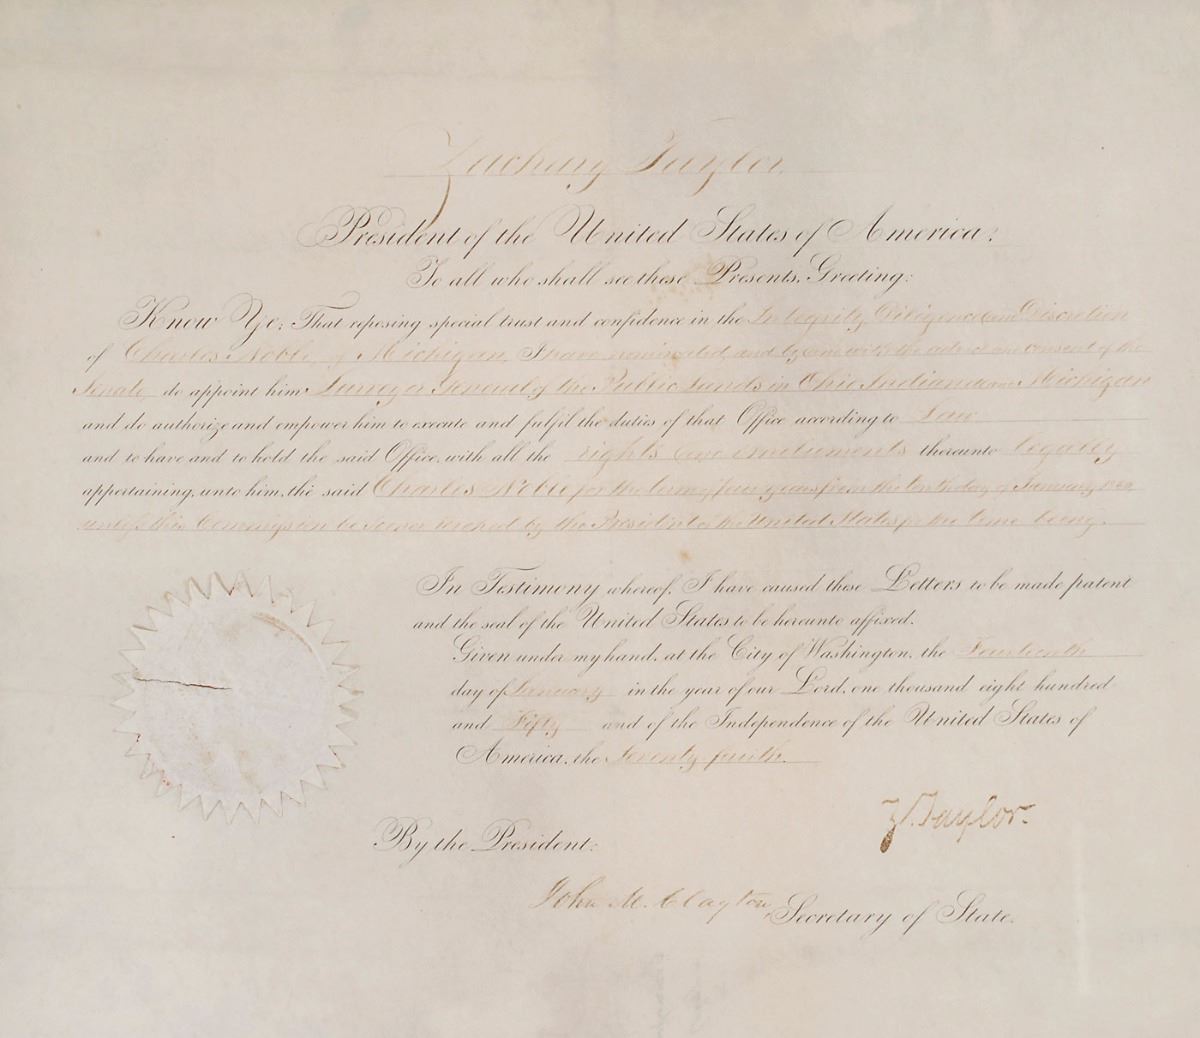 Zachary Taylor
President of the United States of America:
To all who shall see these Presents, Greeting:
Know Ye; That reposing special trust and confidence in the Integrity, Diligence and Discretion
of Charles Noble, of Michigan, I have nominated, and by and with the advice and consent of the
Senate do appoint him Surveyor General of the Public Lands in Ohio Indiana and Michigan
and do authorize and empower him to execute and fulfil the duties of that Office according to Law
and to have and to hold the said Office, with all the rights and emoluments thereunto legally
appertaining, unto him, the said Charles Noble for the term of four years from the tenth day of January
unless this Commission be sooner revoked by the President of the United States for the time being.
In Testimony whereof, I have caused these Letters to be made patent
and the seal of the United States to be hereunto affixed.
Given under my hand, at the City of Washington, the Fourteenth
day of January in the year of our Lord, one thousand eight hundred
and Fifty and of the Independence of the United States of
America, the Seventy fourth.
Z. Taylor.
By the President:
John M. Clayton, Secretary of State.